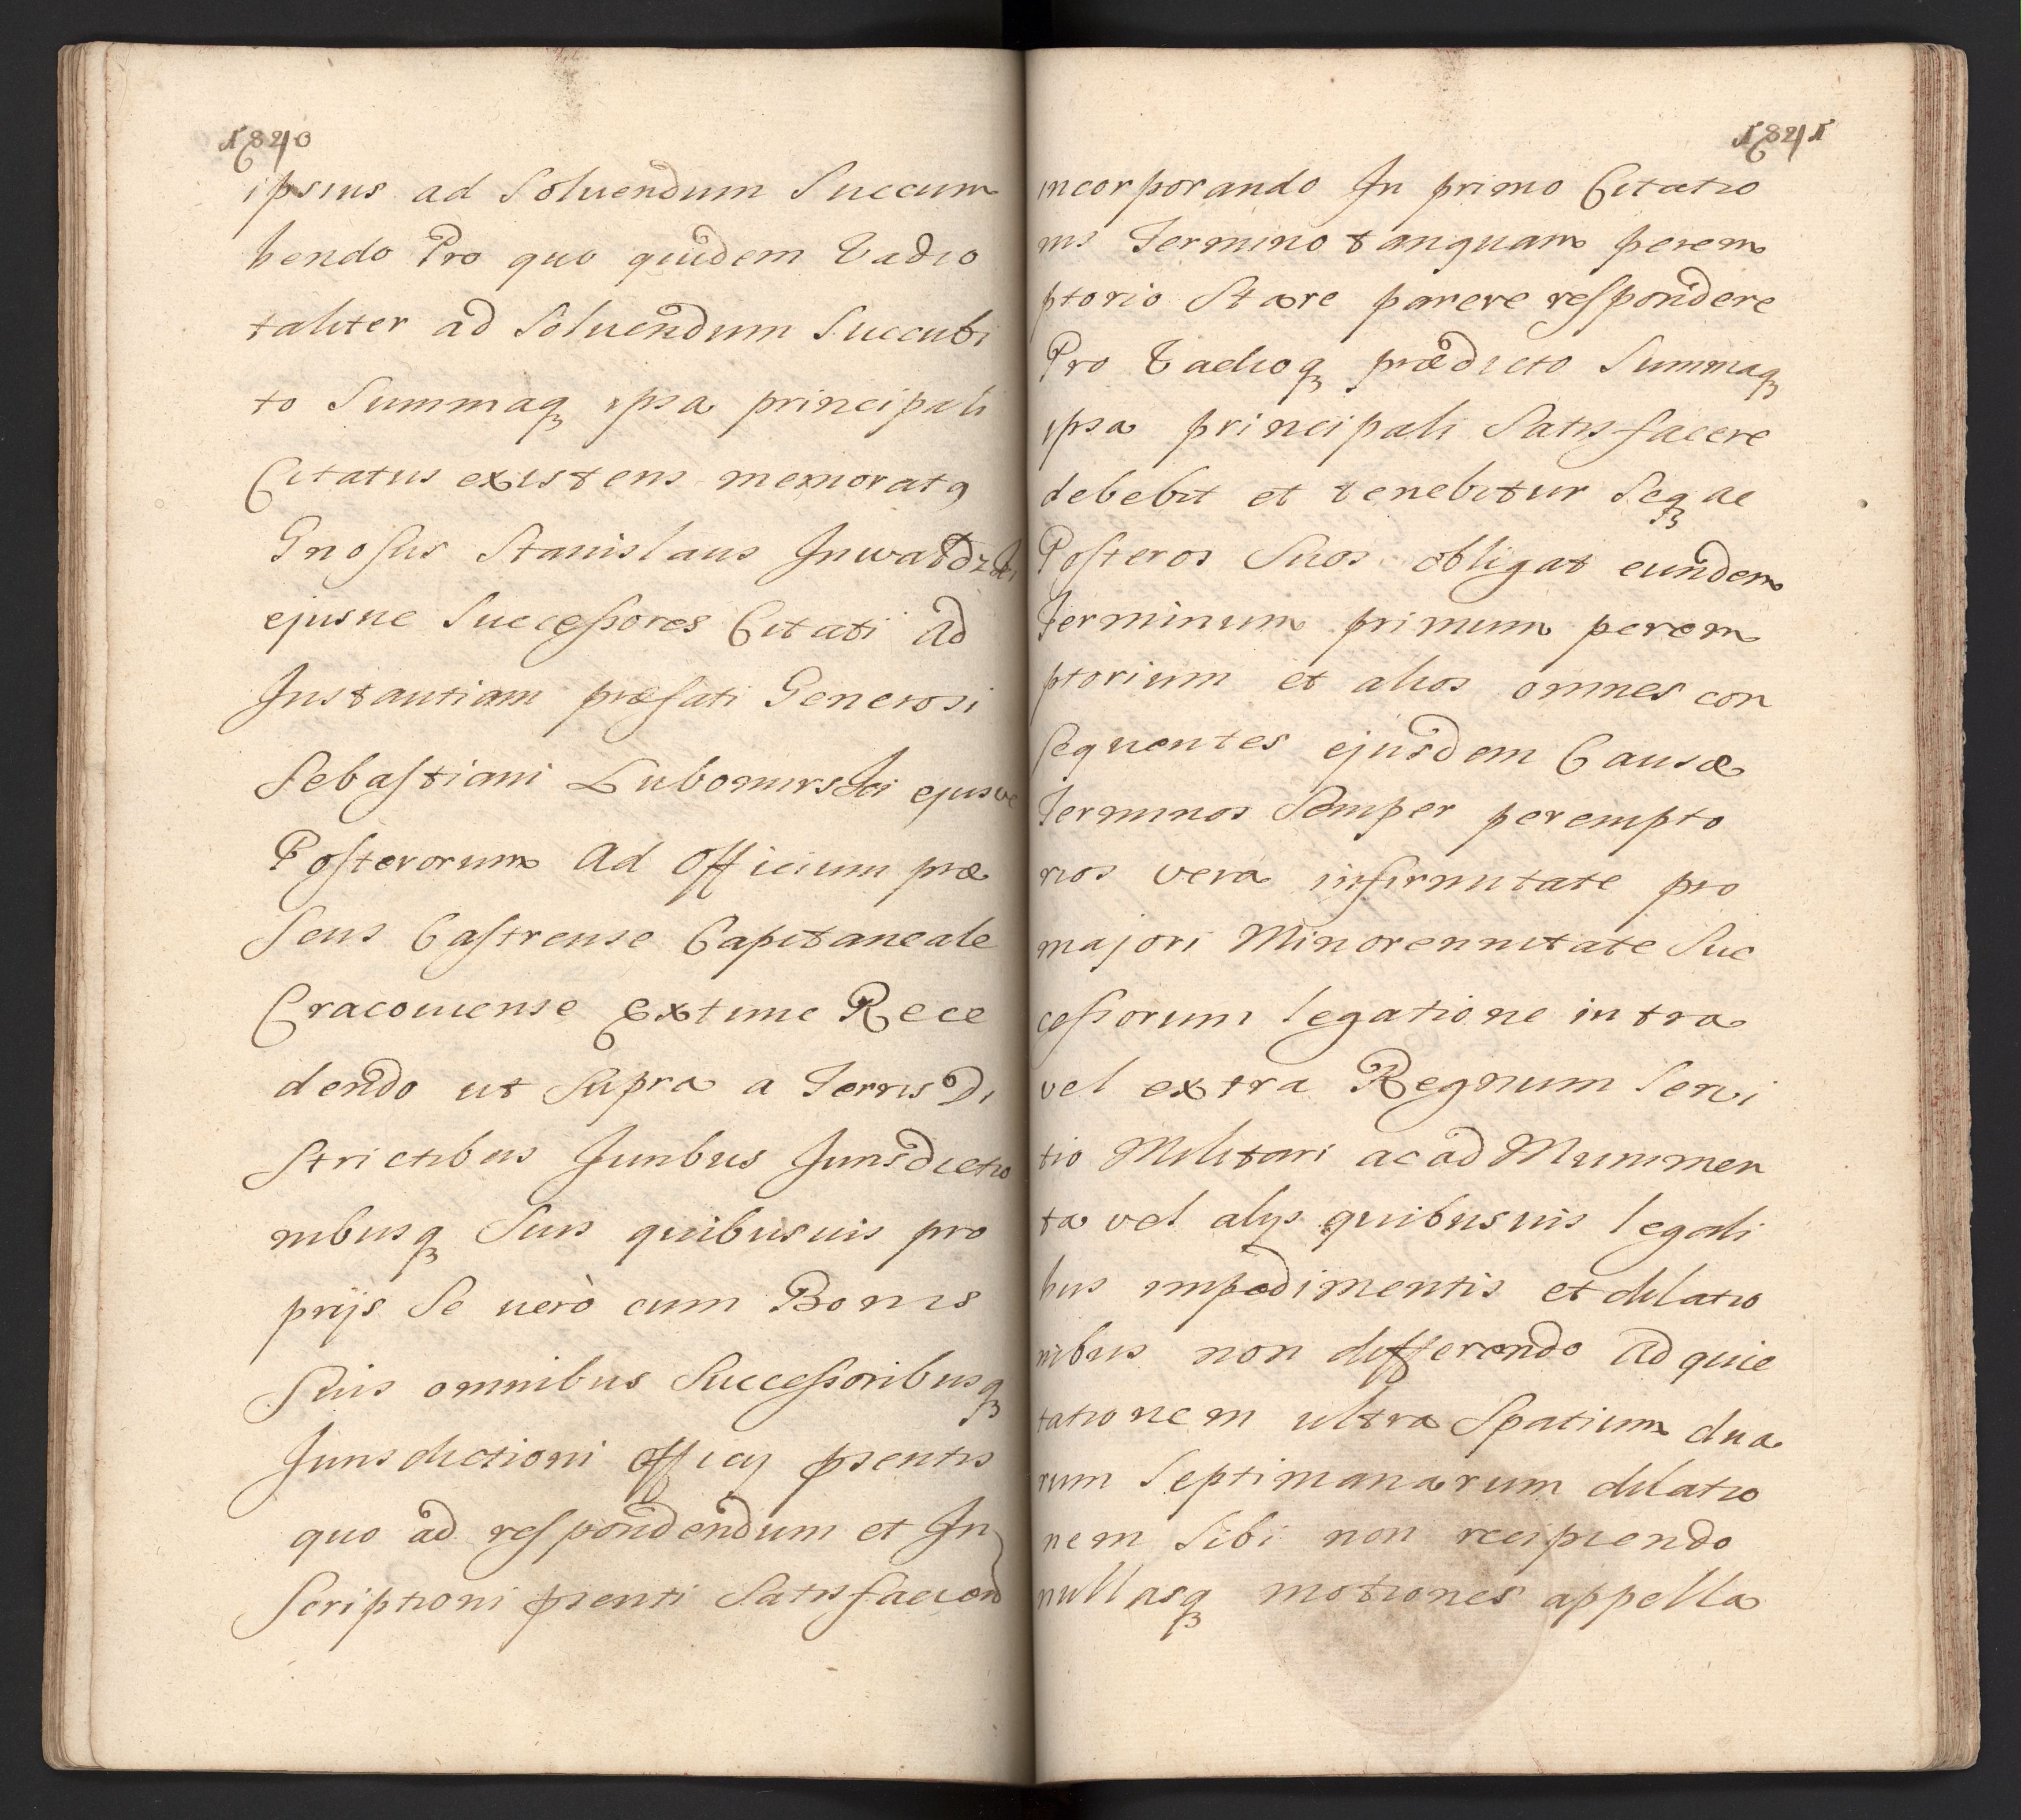 1840
ipsius ad Soluendum Succum
bendo Pro quo quidem Vadio
taliter ad Soluendum Succubi
to Summaq₃ ipsa principali
Citatus existens memoratꝯ
Gnosus Stanislaus Inwadzki
ejusue Successores Citati ad
Instantiam præfati Generosi
Sebastiani Lubomirski ejusve
Posterorum ad Officium præ
sens Castrense Capitaneale
Cracouiense Extunc Rece
dendo ut Supra a Terris Di
strictibus Juribus Jurisdictio
nibusq₃ Suis quibusuis pro
prijs Se uerò cum Bonis
Suis omnibus Successoribusq₃
Jurisdictioni Officij pꝛsentis
quo ad respondendum et In
scriptioni pꝛsenti Satisfaciend
1841
incorporando In primo Citatio
nis Termino tanquam perem
ptorio Stare parere respondere
Pro Vadioq₃ prædicto Summaq₃
ipsa principali Satisfacere
debebit et tenebitur Seq₃ ac
Posteros Suos obligat eundem
Terminum primum perem
ptorium et alios omnes con
sequentes ejusdem Causæ
Terminos Semper perempto
rios vera infirmitate pro
majori Minorennitate Suc
cessorum legatione intra
vel extra Regnum Servi
tio Militari ac ad Munimen
ta vel alijs quibusuis legali
bus impedimentis et dilatio
nibus non differendo ad quie
tationem ultra Spatium dua
rum Septimanarum dilatio
nem Sibi non recipiendo
nullasq₃ motiones appella